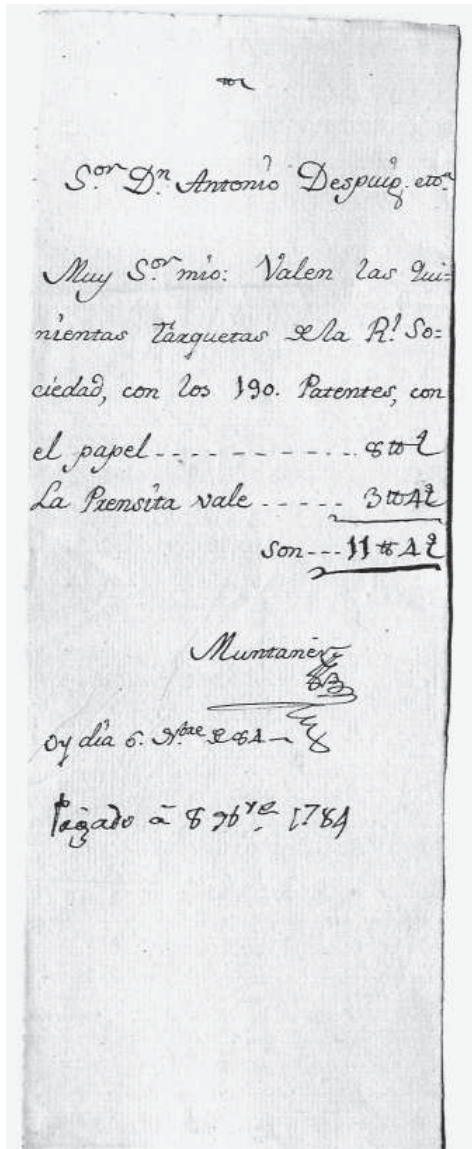 S.or D.n Antonio Despuig ett.a
Muy S.or mio: Valen las Qui=
nientas Tarquetas de la R.l So=
ciedad, con los 190. Patentes, con
el papel - - - - - - - - - - - - 8 tt
La Prensita vale - - - - - 3 tt 4
son - - - 11 tt 4
Muntaner
oy dia 6. 9.bre de 84
Pagado â 8 9b.re 1784